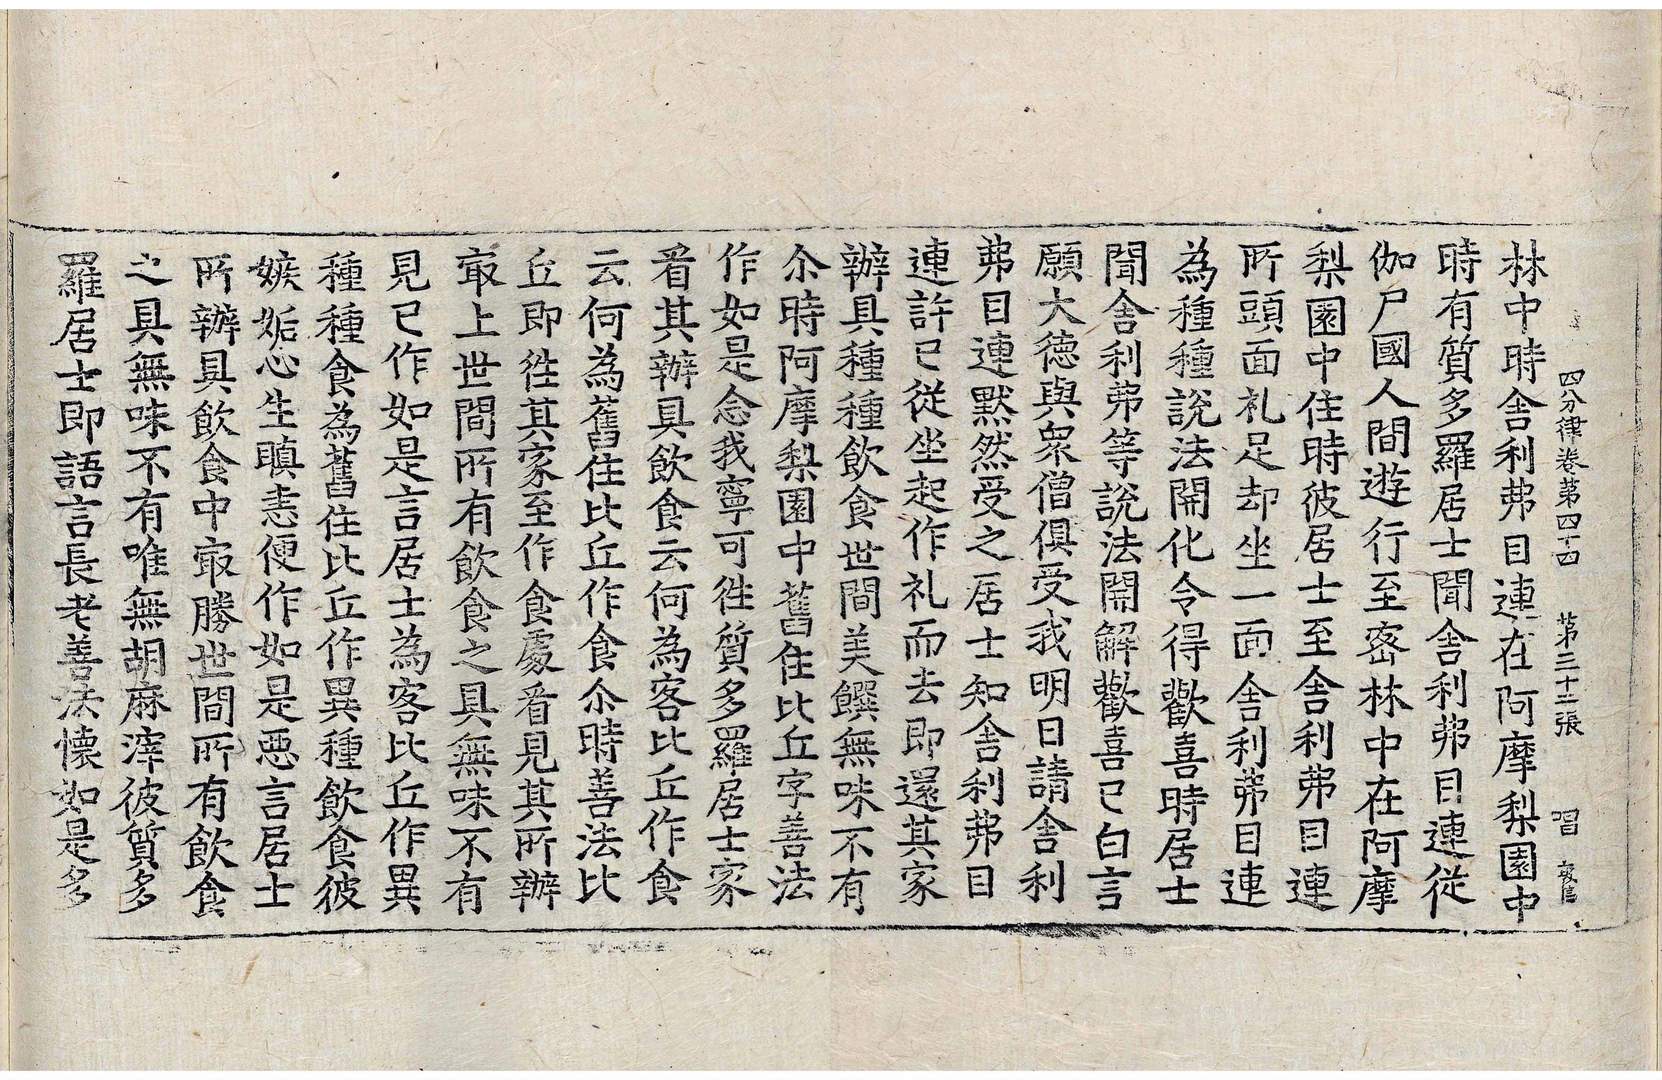 四分律卷第四十四 第三十二張 唱
林中時舎利弗目連在阿摩梨園中
時有質多羅居士聞舎利弗目連従
伽尸國人間遊行至宻林中在阿摩
梨園中住時彼居士至舎利弗目連
所頭面礼足却坐一面舎利弗目連
為種種說法開化令得歡喜時居士
聞舎利弗等說法開解歡喜已白言
願大德與衆僧俱受我明日請舎利
弗目連默然受之居士知舎利弗目
連許已從坐起作礼而去即還其家
辦具種種飲食世間美饌無味不有
尒時阿摩梨園中舊住比丘字善法
作如是念我寧可往質多羅居士家
看其辦具飲食云何為客比丘作食
云何為舊住比丘作食尒時善法比
丘即徃其家至作食處看見其所辦
㝡上世間所有飲食之具無味不有
見已作如是言居士為客比丘作異
種種食為舊住比丘作異種飲食彼
嫉妬心生瞋恚便作如是惡言居士
所辦具飲食中㝡勝世間所有飲食
之具無味不有唯無胡麻滓彼質多
羅居士即語言長老善法懷如是多